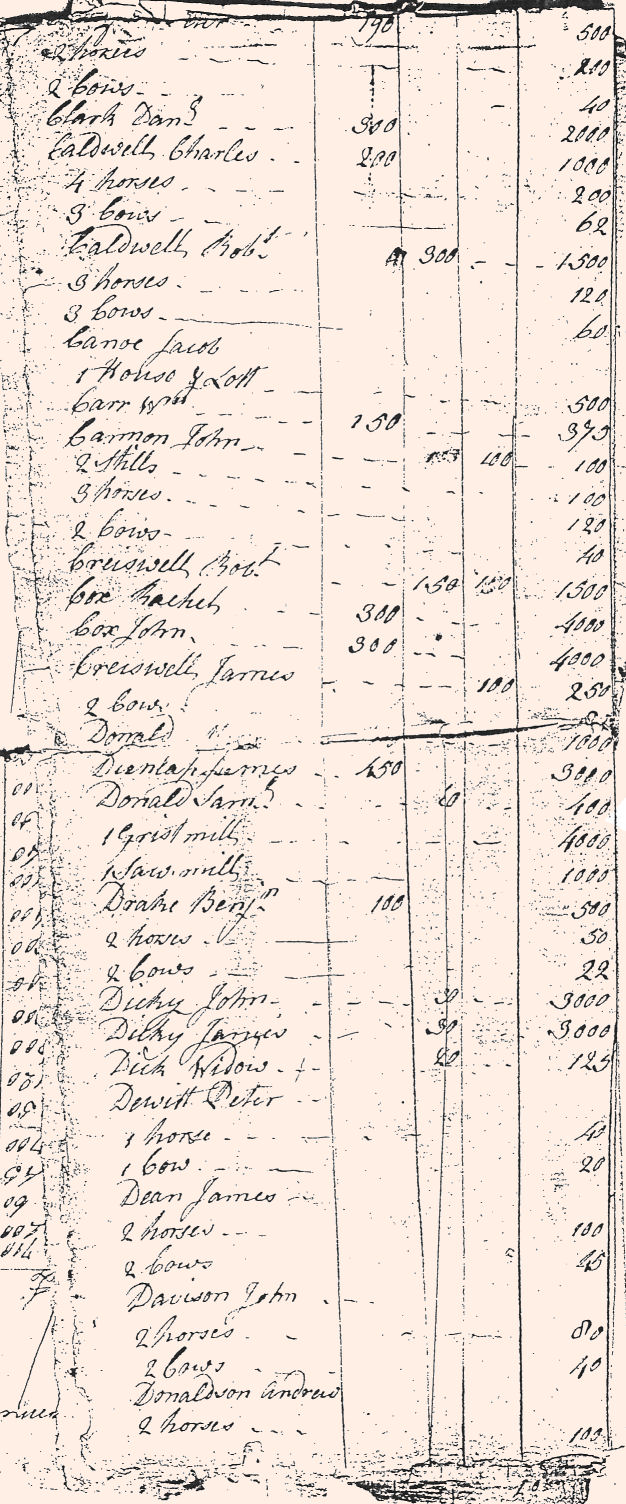 190 500
2 horses 200
2 Cows 40
Clark Danl 300 2000
Caldwell Charles 200 1000
4 horses 200
3 Cows 62
Caldwell Robt 300 1500
3 horses 120
3 Cows 60
Canoe Jacob
1 House & Lott 500
Carr Wm 150 375
Cannon John 100 100
2 Stills 100
3 horses 120
2 Cows 40
Creiswell Robt 150 150 1500
Cox Rachel 300 4000
Cox John 300 4000
Creiswell James 100 250
2 Cow
Donald 1000
James 450 3000
Donald Saml 400
1 Grist mill 4000
1 Saw mill 1000
Drake Benjn 100 500
2 horses 50
2 Cows 22
Dicky John 30 3000
Dicky James 30 3000
Dick Widow 20 125
Dewitt Peter
1 horse 40
1 Cow 20
Dean James
2 horses 100
2 Cows 45
Davison John
2 horses 80
2 Cows 40
Donaldson Andrew
2 horses 100